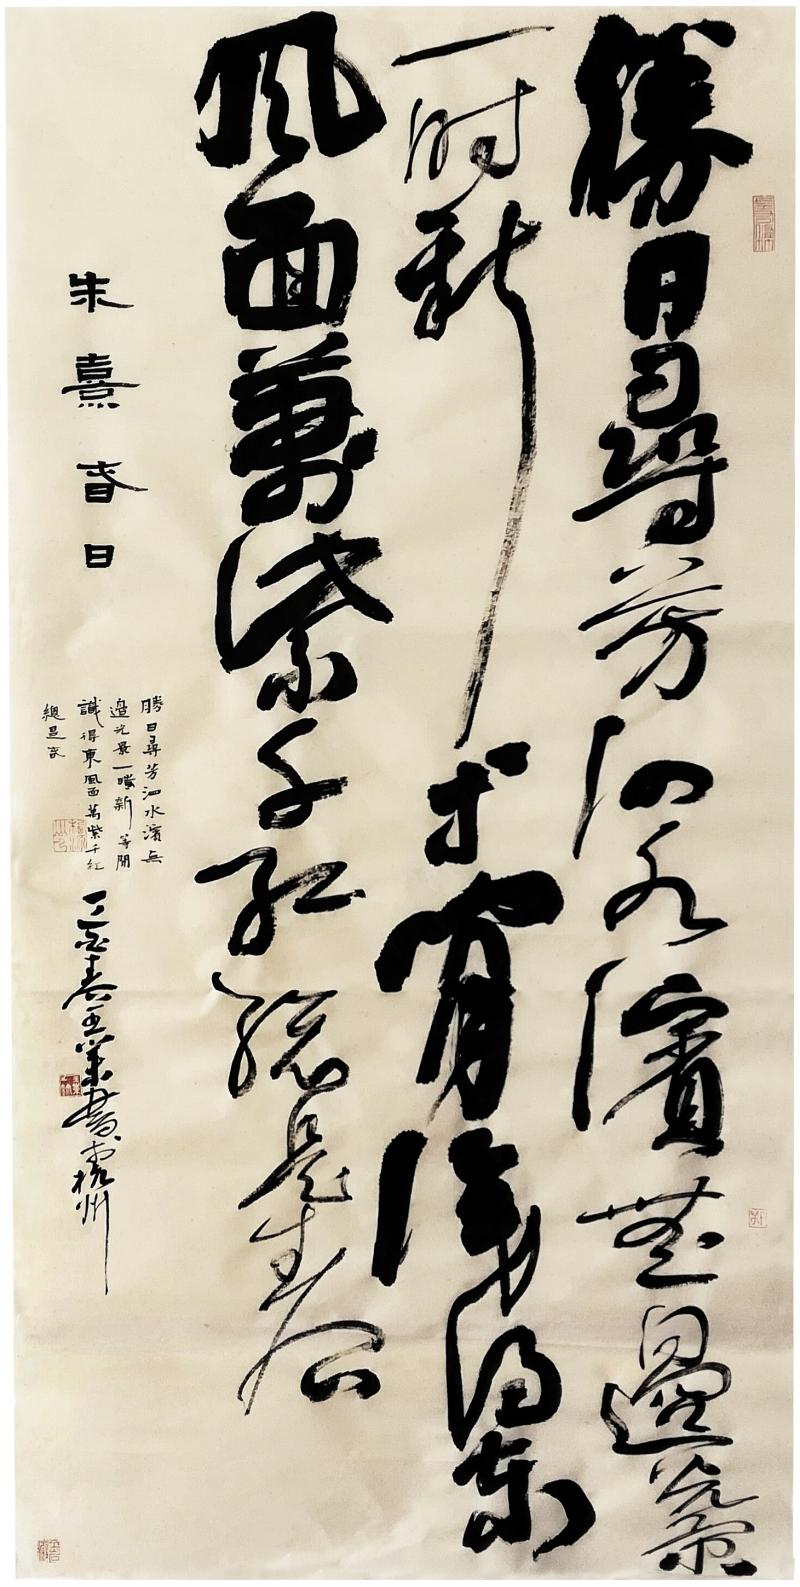 勝日尋芳泗水濱無邊光景
一时新等閒識得東
風面萬紫千紅總是春
朱熹春日
勝日尋芳泗水濱無
邊光景一時新等閒
識得東風面萬紫千紅
總是春
春王業書於杭州